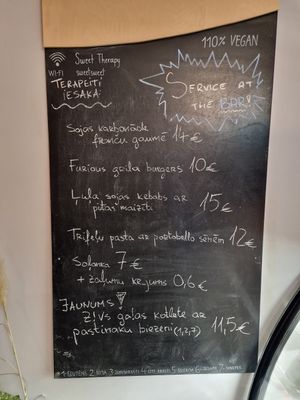 110% VEGAN
Sweet Therapy
WI-FI sweetsweet
TERAPEITI
IESAKA:
SERVICE AT
THE BAR!
Sojas karbonāde
franču gaumē 14€
Furious grila burgers 10€
Lula sojas kebabs ar
pitas maizīti 15€
Trifeļu pasta ar portobello sēnēm 12€
Soļanka 7€
+ zaļumu krējums 0,6€
JAUNUMS!
Zivs gaļas kotlete ar
pastinaku biezeni (1,2,7) 11,5€